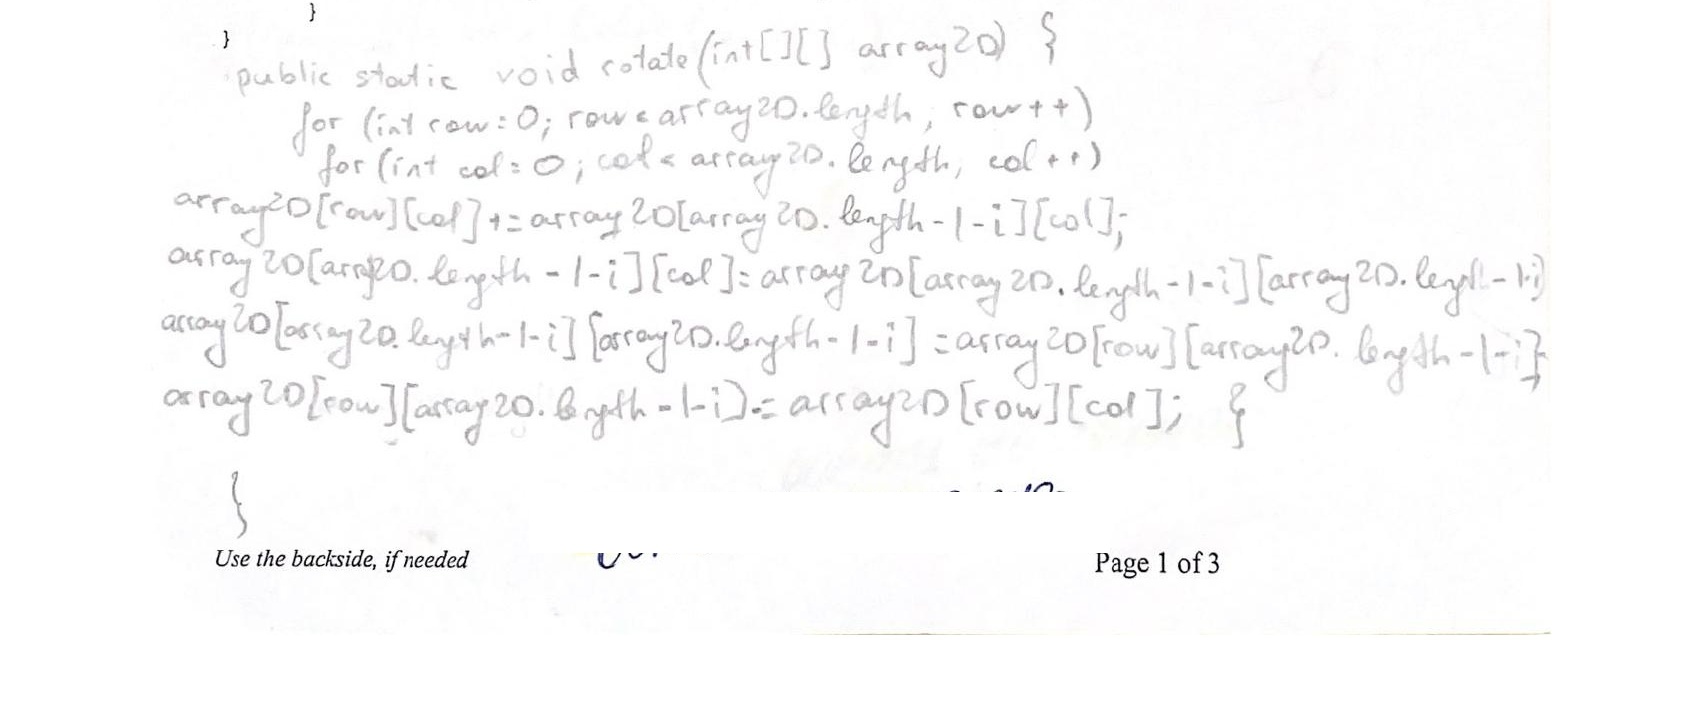 }
}
public static void rotate(int[][] array2D) {
for (int row=0; row<array2D.length, row++)
for (int col=0; col<array2D.length, col++)
array2D[row][col]+=array2D[array2D.length-1-i][col];
array2D[array2D.length-1-i][col]=array2D[array2D.length-1-i][array2D.length-1-i]
array2D[array2D.length-1-i][array2D.length-1-i]=array2D[row][array2D.length-1-i];
array2D[row][array2D.length-1-i]=array2D[row][col]; }
}
Use the backside, if needed
Page 1 of 3